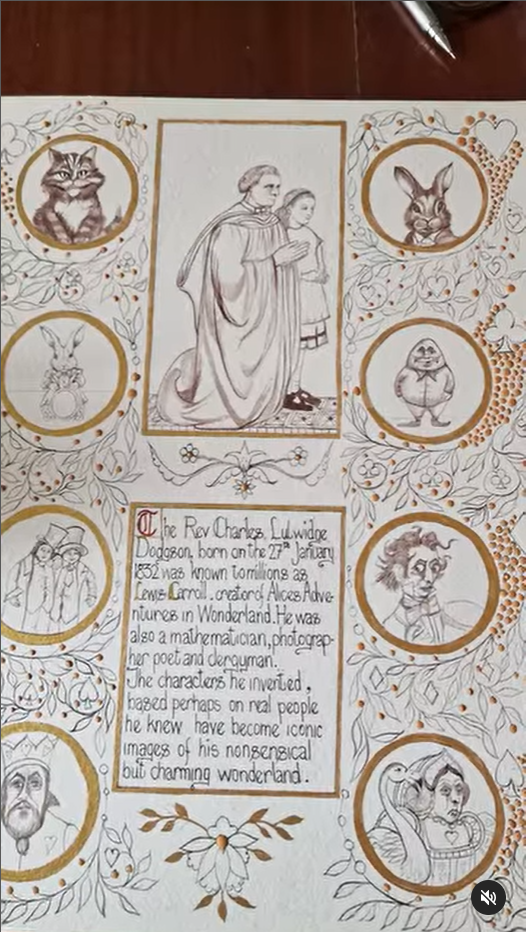 The Rev Charles Lutwidge
Dodgson, born on the 27th January
1832 was known to millions as
Lewis Carroll, creator of Alices Adve-
ntures in Wonderland. He was
also a mathematician, photograp-
her poet and clergyman.
The characters he invented,
based perhaps on real people
he knew have become iconic
images of his nonsensical
but charming wonderland.